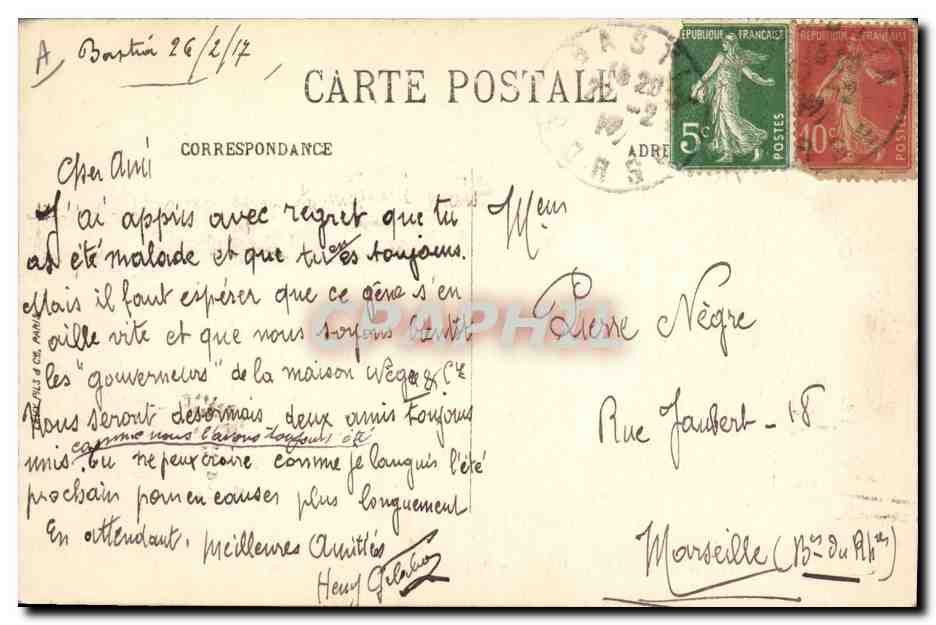 A
Bastia 26/2/17
CARTE POSTALE
REPUBLIQUE FRANÇAISE
5c
POSTES
REPUBLIQUE FRANÇAISE
10c
POSTES
BASTIA
20
-2
CORSE
CORRESPONDANCE
ADRE
Cher Ami
J'ai appris avec regret que tu
as été malade et que tu en es toujours.
Mais il faut espérer que ce gêne s'en
aille vite et que nous soyons bientôt
les "gouverneurs" de la maison Nègre & Cie
Nous seront désormais deux amis toujours
comme nous l'avons toujours été
unis. Tu ne peux croire comme je languis l'été
prochain pour en causer plus longuement
En attendant, meilleures Amitiés
Henry
Meur
Pierre Nègre
Rue Jaubert - 18
Marseille (Bes du Rhes
FILS & CIE, PARIS
CPAPHIL